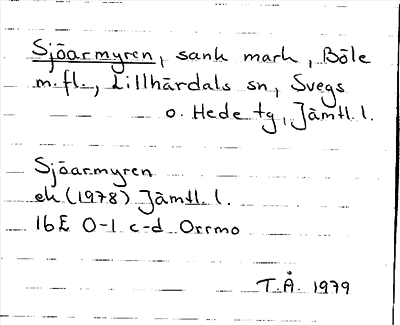 Sjöarmyren, sank mark, Böle
m.fl., Lillhärdals sn, Svegs
o. Hede tg, Jämtl. l.
Sjöarmyren
ek (1978) Jämtl. l.
16E 0-1 c-d Orrmo
T.Å. 1979